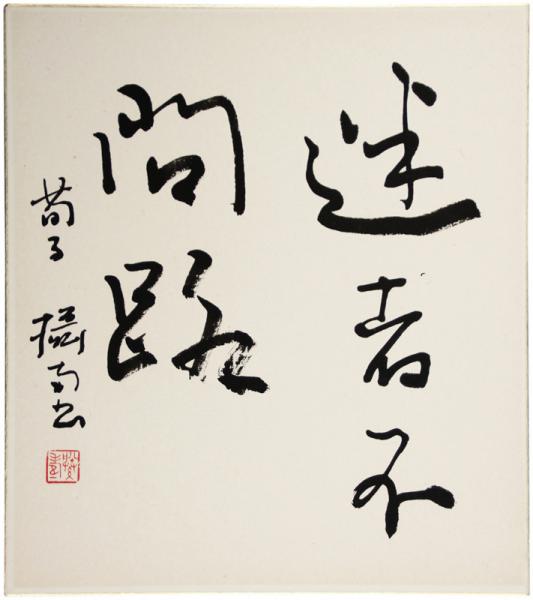 迷者不
問路
荀子 攝南書